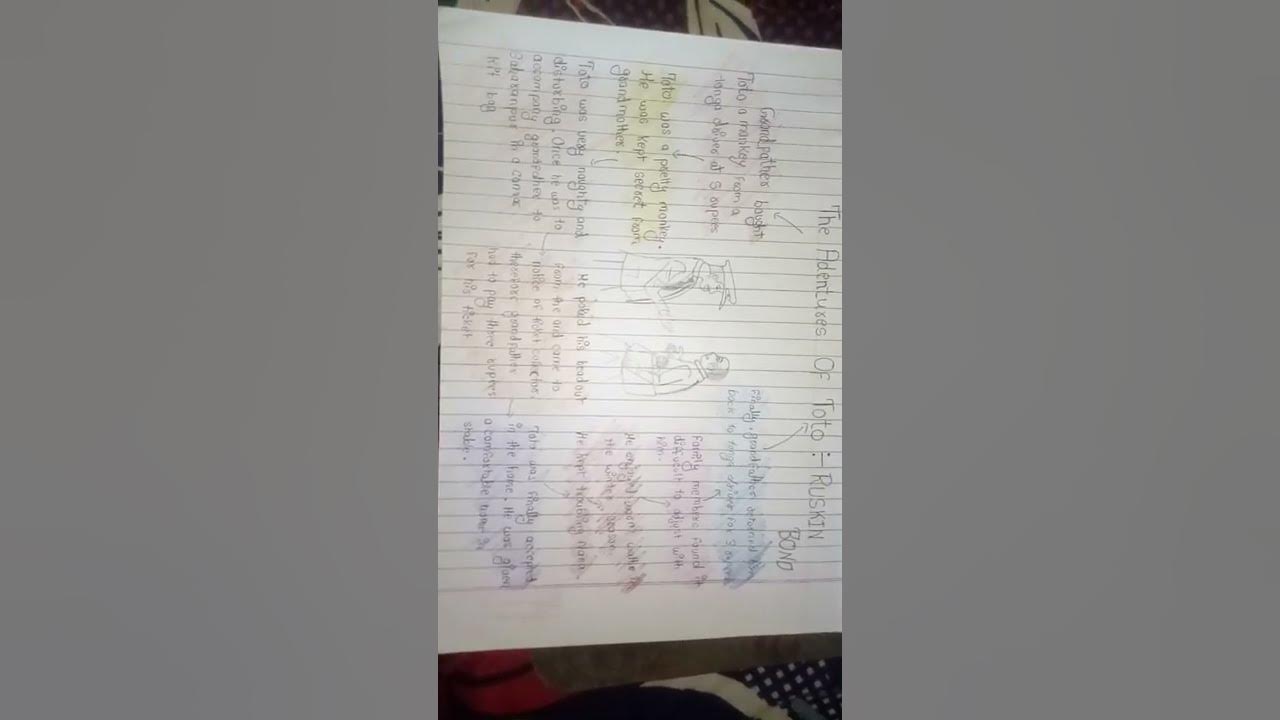 The Adentures Of Toto :- RUSKIN
BOND
Grandfather bought
Toto a monkey from a
tonga driver at 5 rupees
Toto was a pretty monkey.
He was kept secret from
grandmother.
Toto was very naughty and
disturbing. Once he was to
accompany grandfather to
Saharanpur in a canvas
kit bag
He poked his head out
from the and came to
notice of ticket collector,
therefore grandfather
had to pay three rupees
for his ticket
Toto was finally accepted
in the home. He was given
a comfortable home in
stable.
He kept troubling Nana.
He enjoyed warm bath in
the winter season
Family members found it
difficult to adjust with
him.
Finally, grandfather returned him
back to tonga driver for 3 rupees